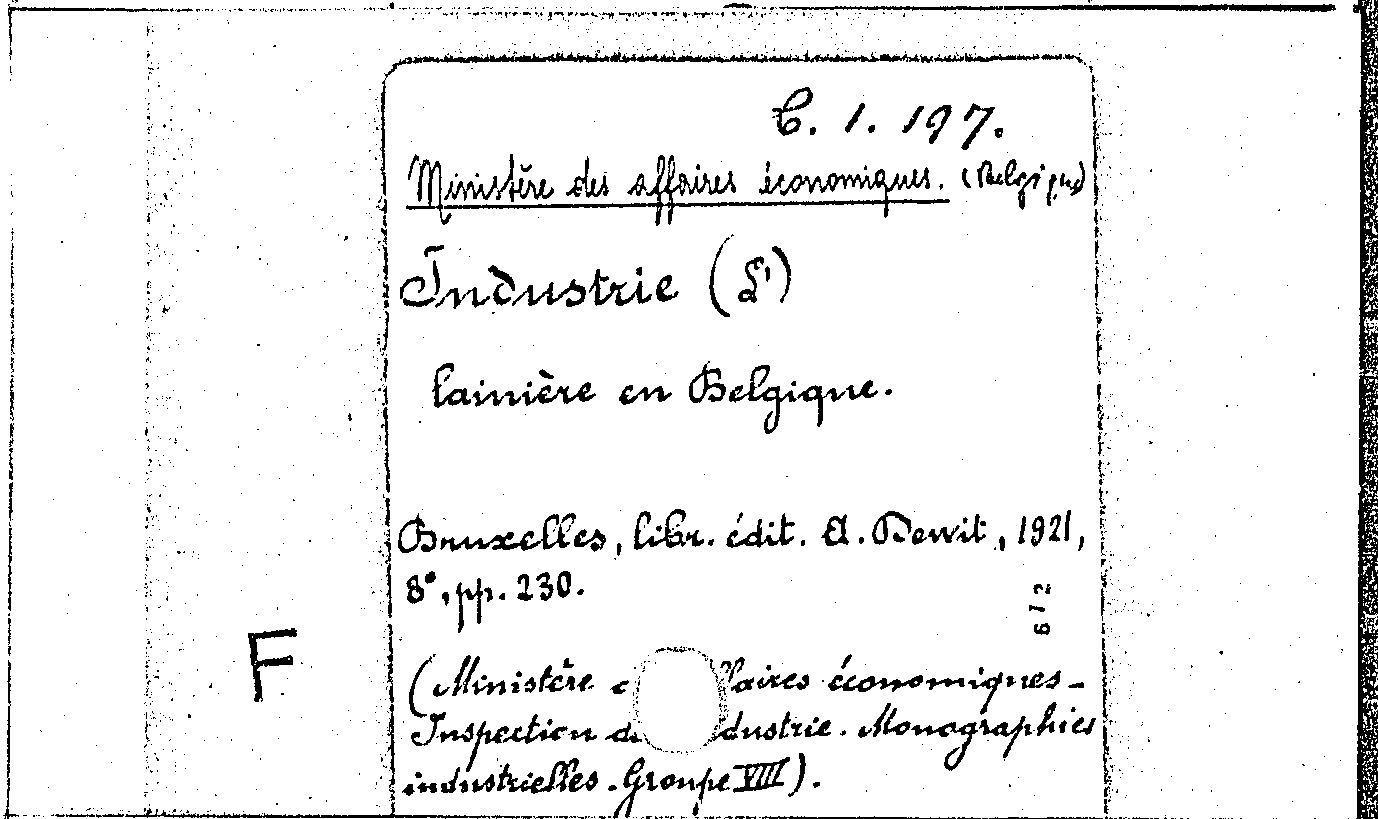 C. 1. 197.
Ministère des affaires économiques. (Belgique)
Industrie (L')
lainière en Belgique.
Bruxelles, libr. édit. A. Dewit, 1921,
8°, pp. 230.
6/2
F
(Ministère affaires économiques -
Inspection de industrie. Monographies
industrielles. Groupe VIII).